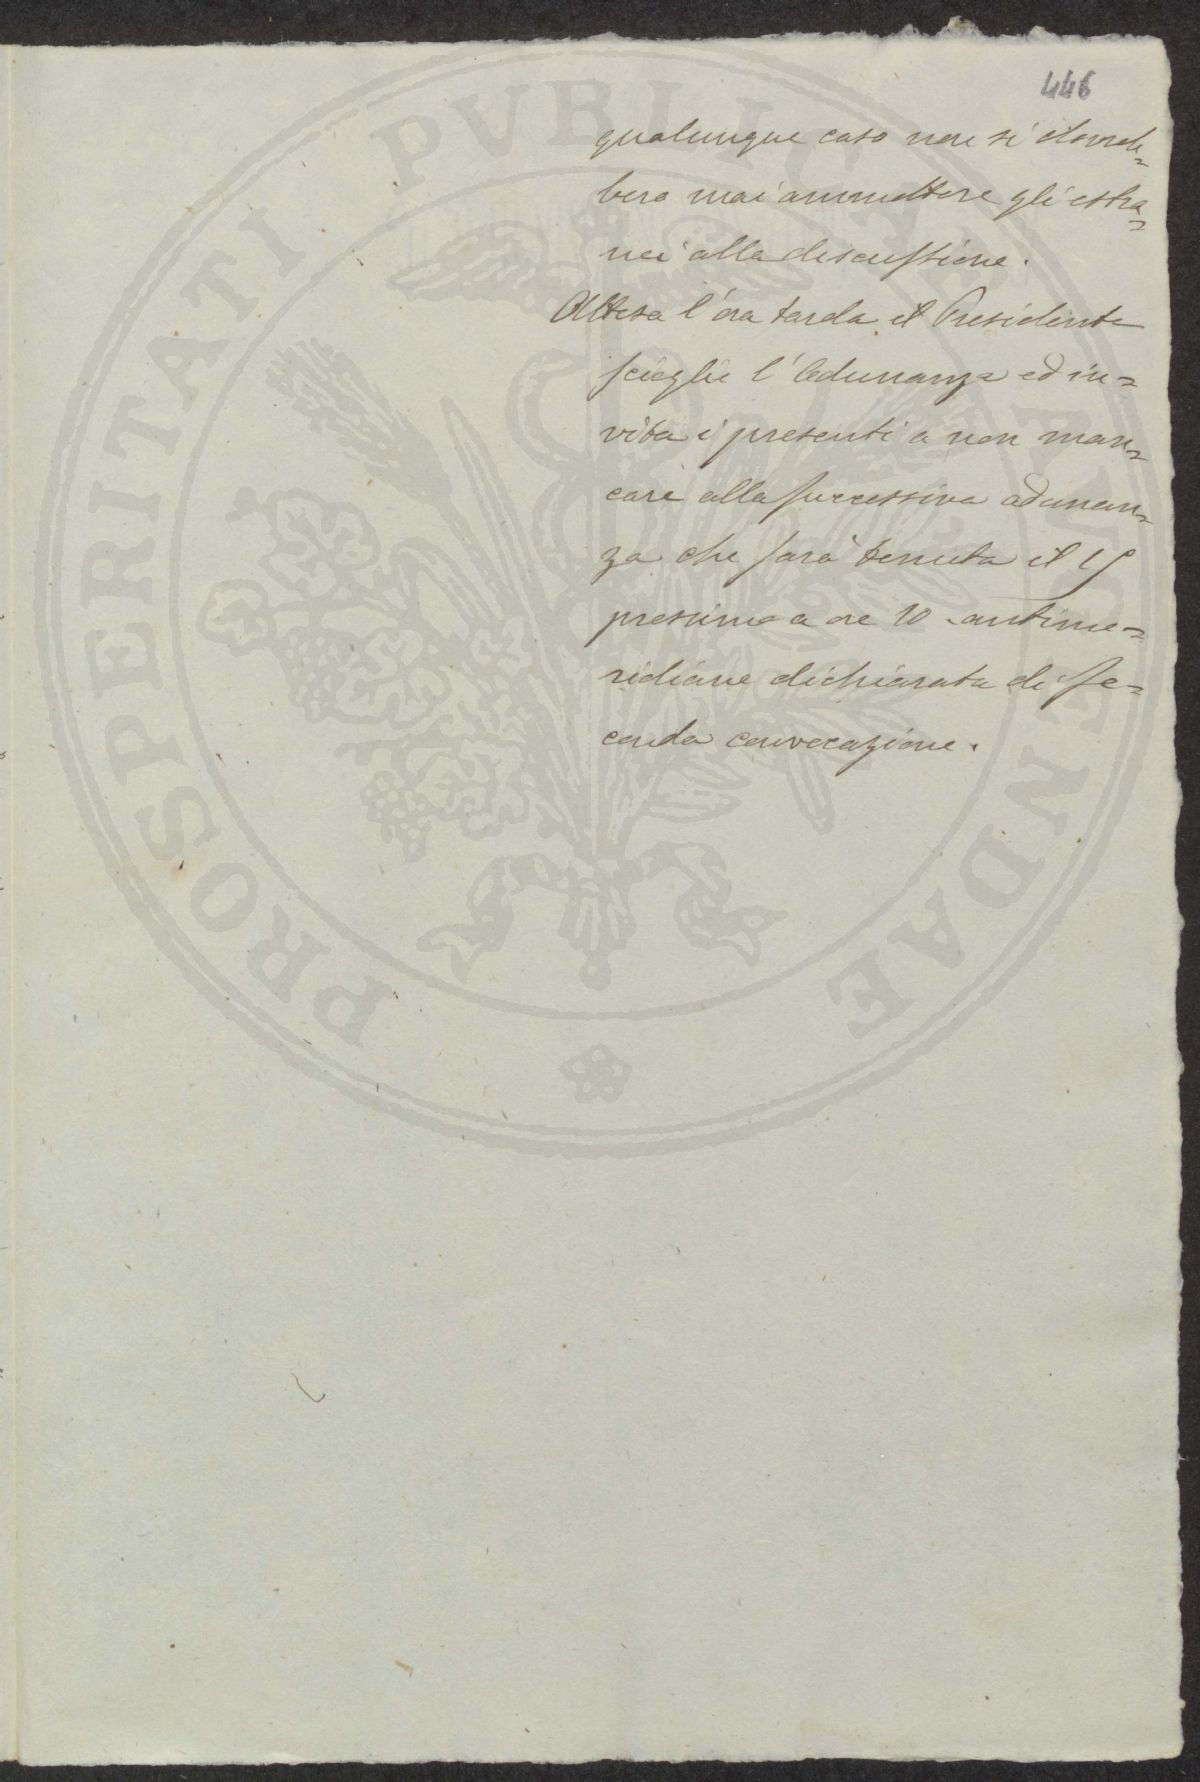 446
qualunque caso non si dovreb=
bero mai ammettere gli estra=
nei alla discussione.
Attesa l'ora tarda il Presidente
scioglie l'Adunanza ed in=
vita i presenti a non man=
care alla successiva adunan=
za che sarà tenuta il 15
prossimo a ore 10 antime=
ridiane dichiarata di se=
conda convocazione.
PROSPERITATI PVBLICAE AVGENDAE